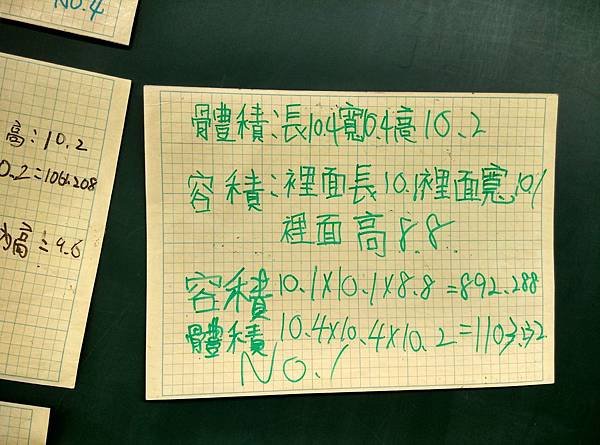 NO.4
高:10.2
0.2=1061.208
高=9.6
體積:長10.4寬10.4高10.2
容積:裡面長10.1裡面寬10.1
裡面高8.8
容積10.1×10.1×8.8=892.288
體積10.4×10.4×10.2=1103.32
NO.1